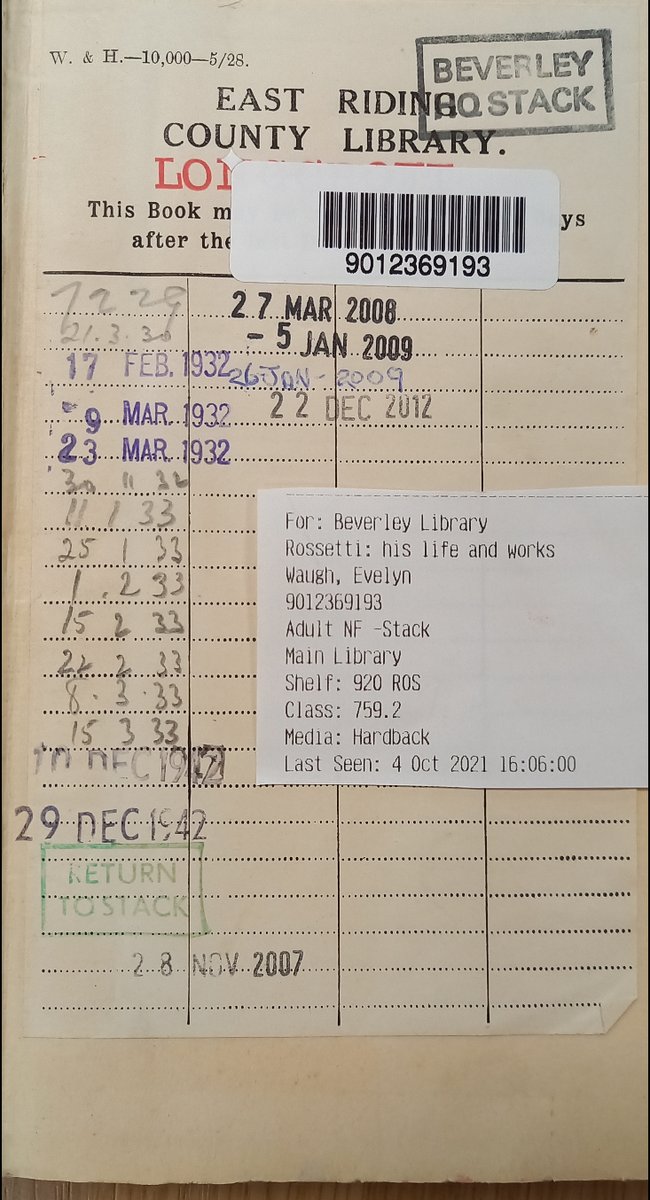 W. & H.—10,000—5/28.
BEVERLEY
HQ STACK
EAST RIDING
COUNTY LIBRARY.
This Book
after the
9012369193
27 MAR 2008
21.3.30
- 5 JAN 2009
17 FEB. 1932
26 JAN - 2009
- 9 MAR. 1932
22 DEC 2012
23 MAR. 1932
30 11 32
11 1 33
25 1 33
1.2 33
15 2 33
22 2 33
8.3.33
15 3 33
For: Beverley Library
Rossetti: his life and works
Waugh, Evelyn
9012369193
Adult NF -Stack
Main Library
Shelf: 920 ROS
Class: 759.2
Media: Hardback
Last Seen: 4 Oct 2021 16:06:00
10 DEC 1942
29 DEC 1942
RETURN
TO STACK
28 NOV 2007